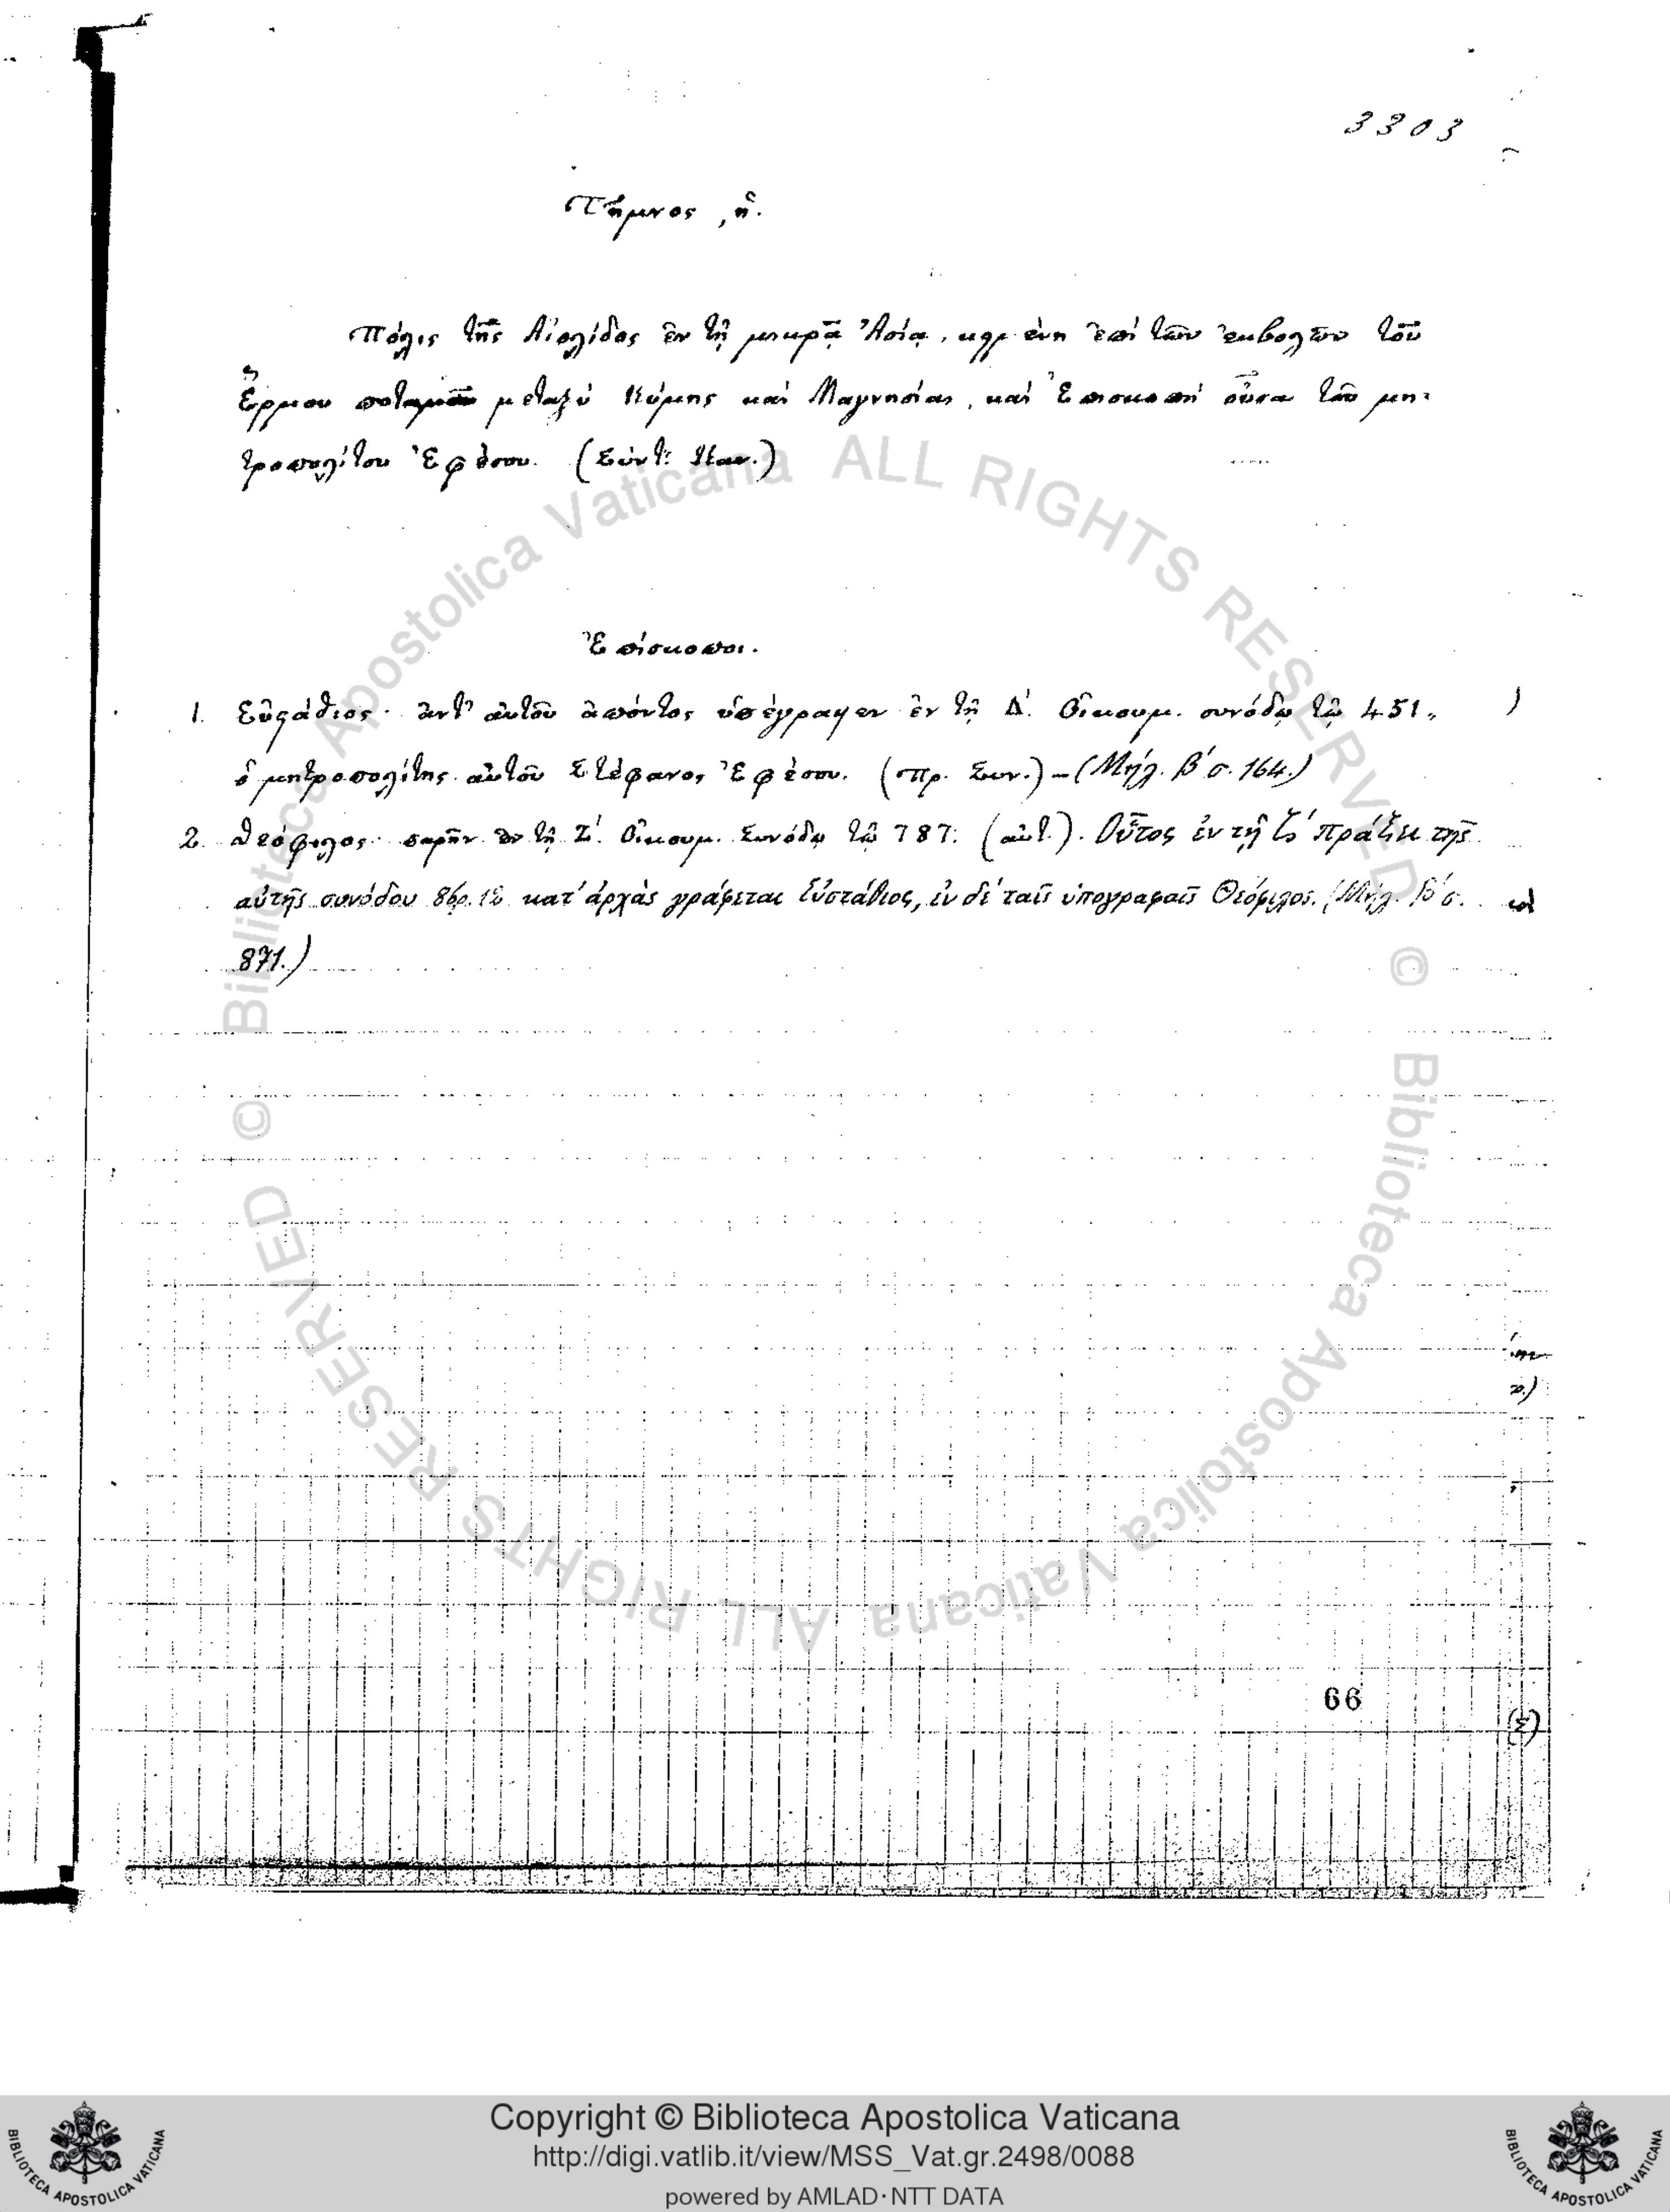 3303
Τῆμνος, ἡ.
Πόλις τῆς Αἰολίδος ἐν τῇ μικρᾷ Ἀσίᾳ, ἐπὶ τῶν ἐκβολῶν τοῦ
Ἕρμου ποταμοῦ μεταξὺ Κύμης καὶ Μαγνησίας, καὶ Ἐπισκοπὴ οὖσα τοῦ μη-
τροπολίτου Ἐφέσου. (Σύντ: Καν.)
Ἐπίσκοποι.
1. Εὐστάθιος· ἀντ' αὐτοῦ ἀπόντος ὑπέγραψεν ἐν τῇ Δ΄. Οἰκουμ. συνόδῳ τῷ 451,
ὁ μητροπολίτης αὐτοῦ Στέφανος Ἐφέσου. (Πρ. Συν.) – (Μήλ. β΄ σ. 164.)
2. Θεόφιλος· παρῆν ἐν τῇ Ζ΄. Οἰκουμ. Συνόδῳ τῷ 787. (αὐτ.). Οὗτος ἐν τῇ πράξει τῆς
αὐτῆς συνόδου κατ' ἀρχὰς γράφεται Εὐστάθιος, ἐν δὲ ταῖς ὑπογραφαῖς Θεόφιλος. (Μήλ. β΄ σ.
871.)
66
(Σ)
Biblioteca Apostolica Vaticana ALL RIGHTS RESERVED ©
Biblioteca Apostolica Vaticana ALL RIGHTS RESERVED ©
Copyright © Biblioteca Apostolica Vaticana
http://digi.vatlib.it/view/MSS_Vat.gr.2498/0088
powered by AMLAD·NTT DATA
BIBLIOTECA APOSTOLICA VATICANA
BIBLIOTECA APOSTOLICA VATICANA